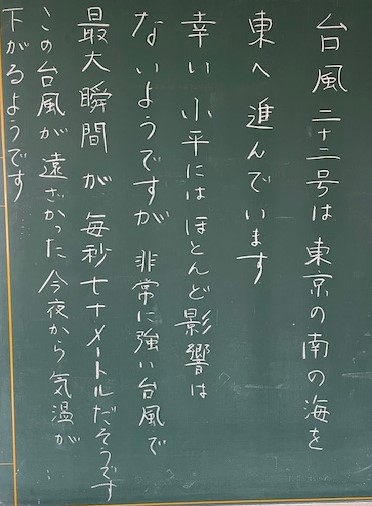 台風二十二号は東京の南の海を
東へ進んでいます
幸い小平にはほとんど影響は
ないようですが 非常に強い台風で
最大瞬間が毎秒七十メートルだそうです
この台風が遠ざかった今夜から気温が
下がるようです